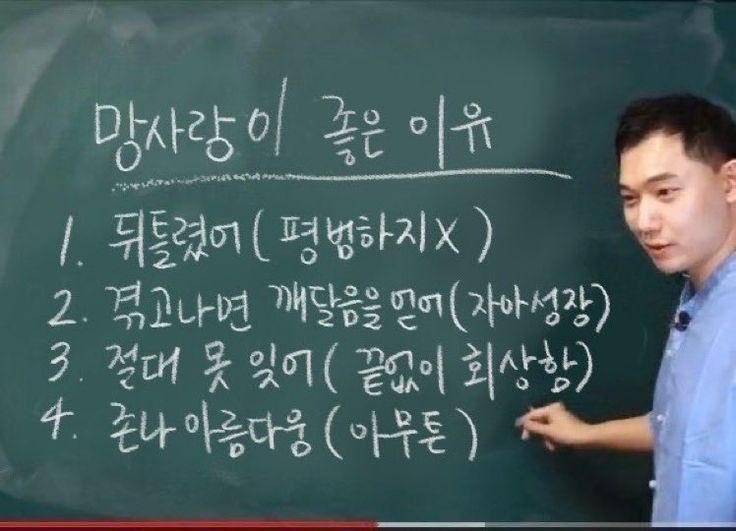 망사랑이 좋은 이유
1. 뒤틀렸어 (평범하지X)
2. 겪고나면 깨달음을 얻어 (자아성장)
3. 절대 못 잊어 (끝없이 회상함)
4. 존나 아름다움 (아무튼)